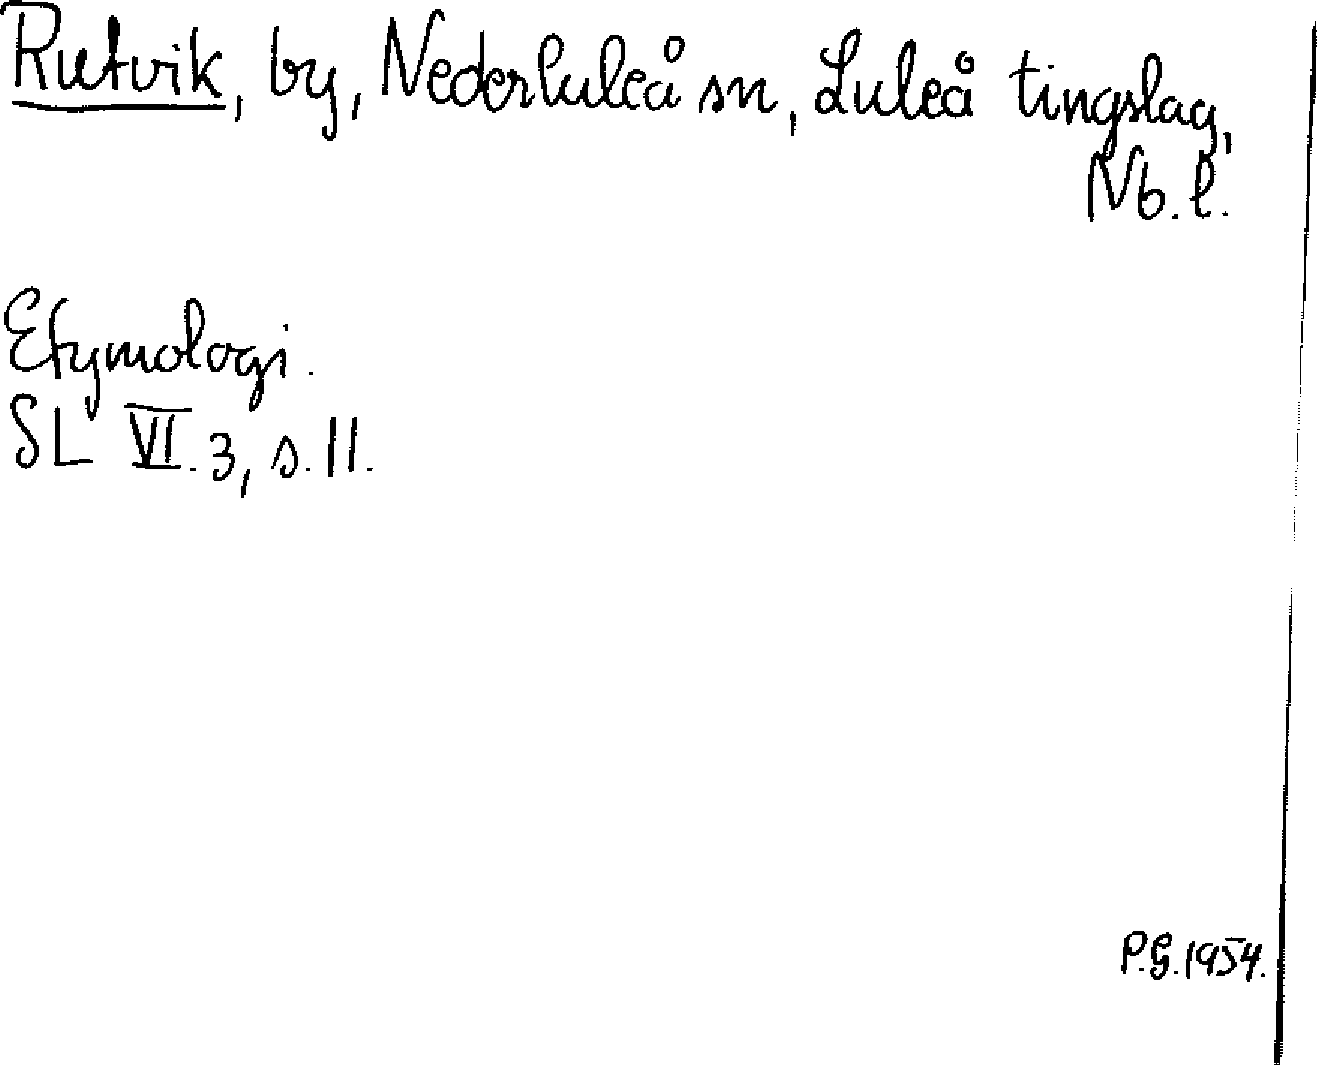 Rutvik, by, Nederluleå sn, Luleå tingslag,
Nb. l.
Etymologi.
SL VI. 3, s. 11.
P.G. 1954.